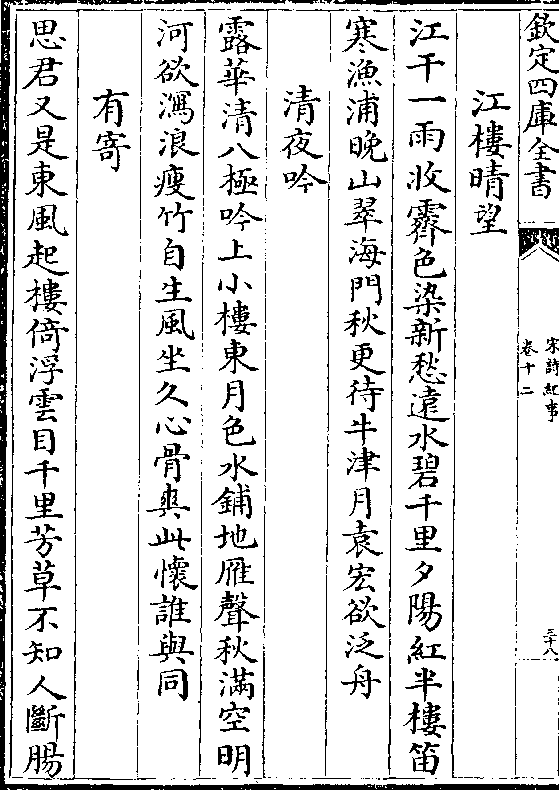 欽定四庫全書
宋詩紀事
卷十二
三十八
江樓晴望
江干一雨收霽色染新愁遠水碧千里夕陽紅半樓笛
寒漁浦晚山翠海門秋更待牛津月袁宏欲泛舟
清夜吟
露華清八極吟上小樓東月色水鋪地雁聲秋滿空明
河欲瀉浪瘦竹自生風坐久心骨爽此懷誰與同
有寄
思君又是東風起樓倚浮雲目千里芳草不知人斷腸